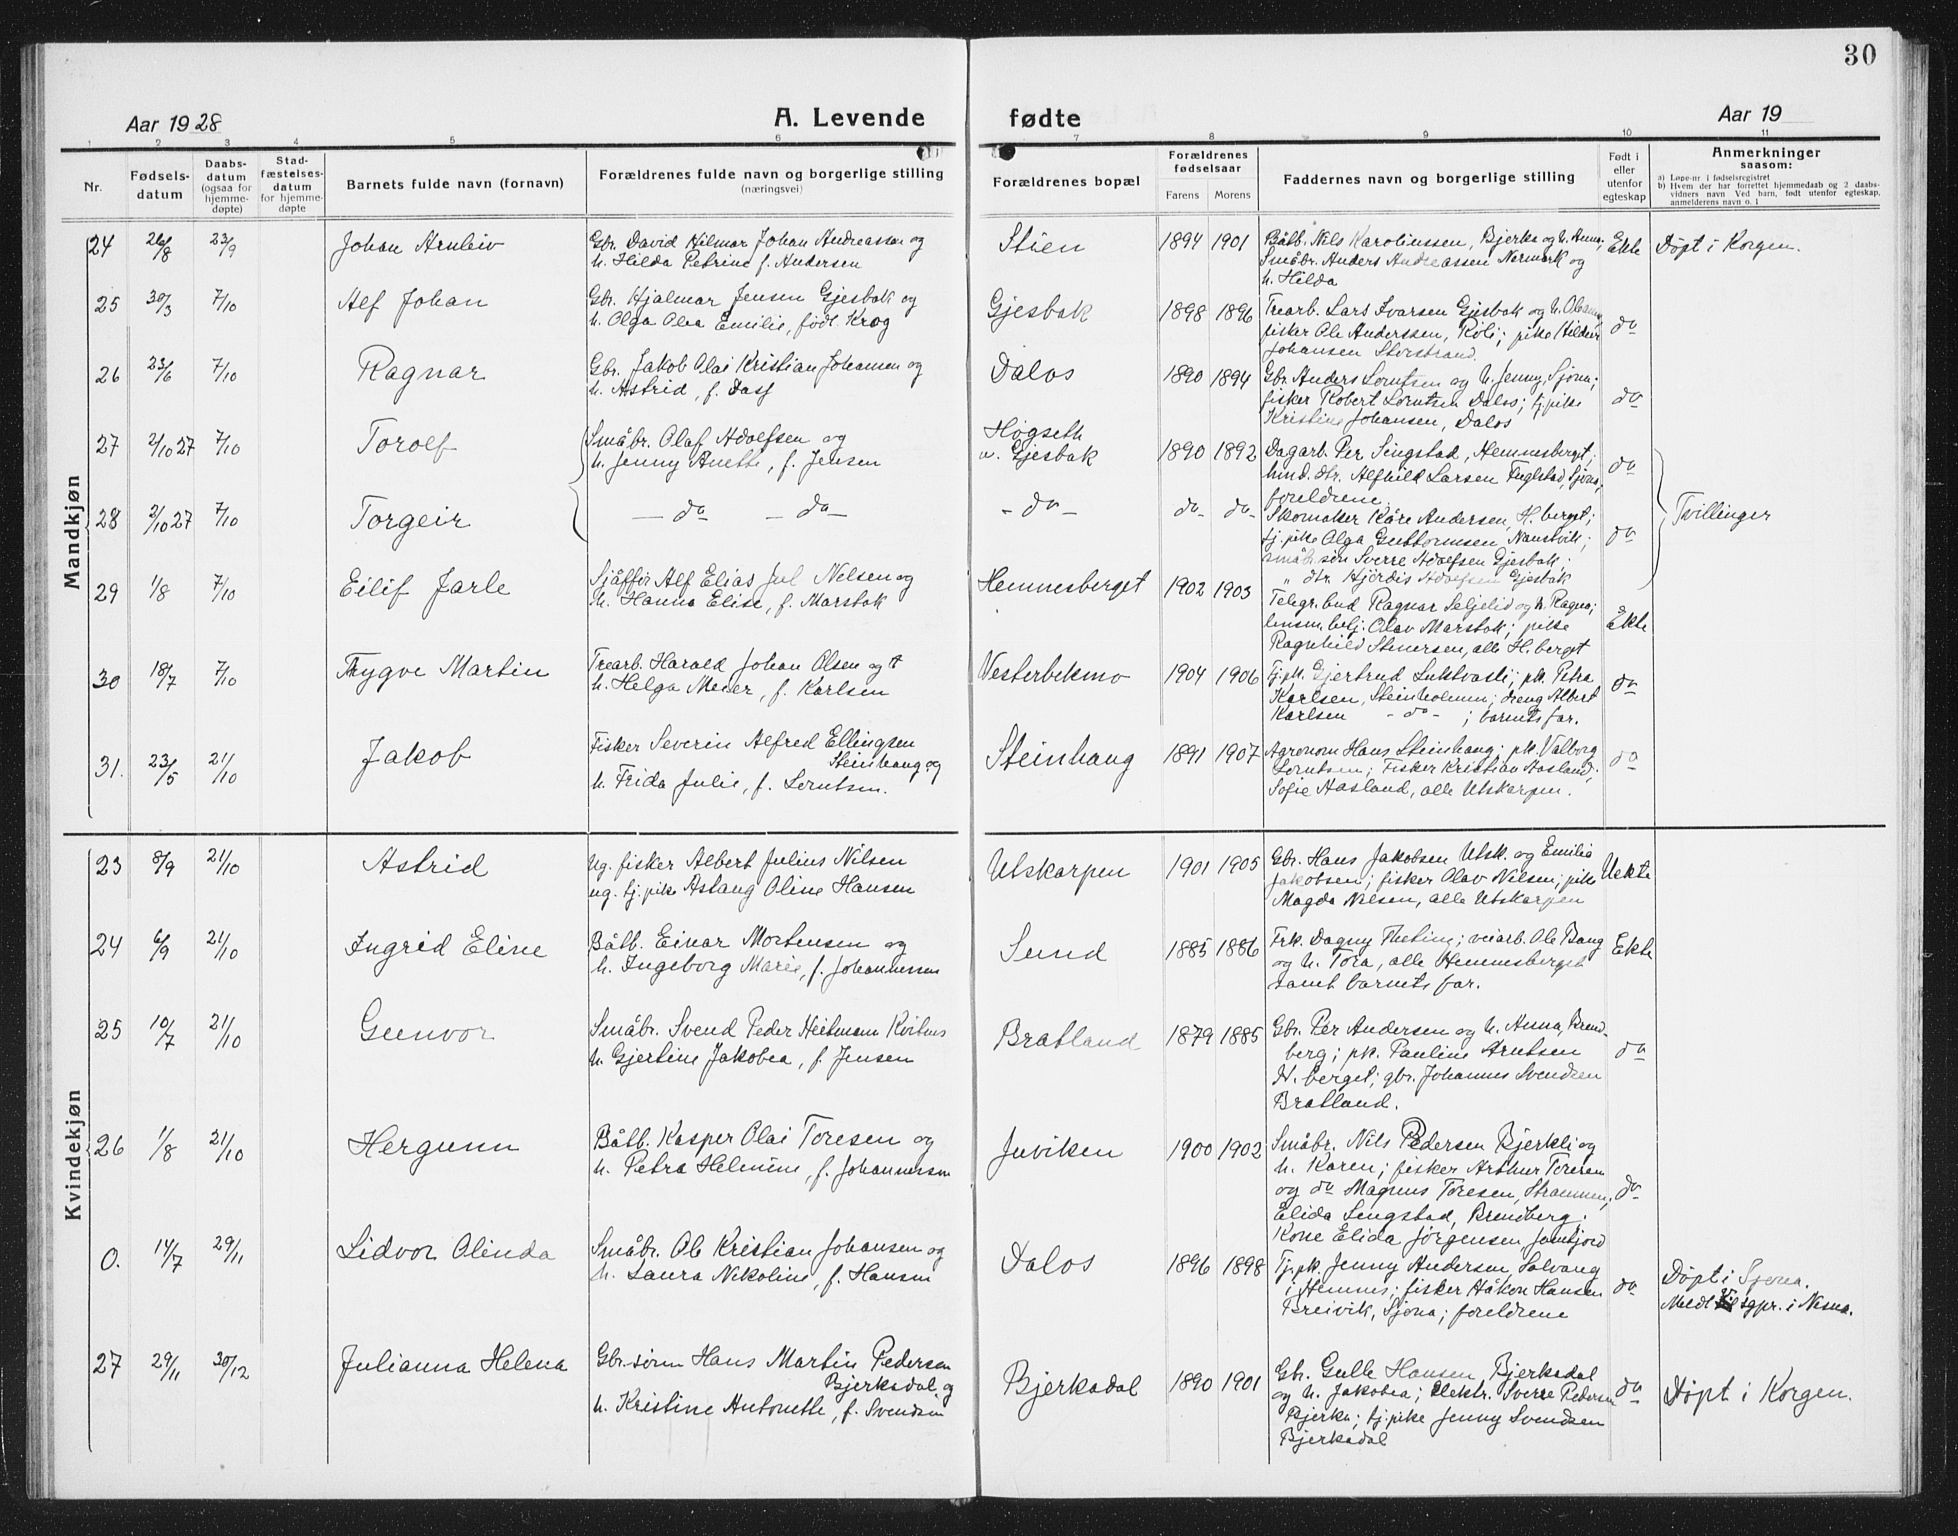 30
Aar 1928
A. Levende
fødte
Aar 19
1 2 3 4 5 6 7 8 9 10 11
Nr.
Fødsels-
datum
Daabs-
datum
(ogsaa for
hjemme-
døpte)
Stad-
fæstelses-
datum
for hjemme-
døpte
Barnets fulde navn (fornavn)
Forældrenes fulde navn og borgerlige stilling
(næringsvei)
Forældrenes bopæl
Forældrenes
fødselsaar
Farens Morens
Faddernes navn og borgerlige stilling
Født i
eller
utenfor
egteskap
Anmerkninger
saasom:
a) Løpe-nr. i fødselsregistret
b) Hvem der har forrettet hjemmedaab og 2 daabs-
vidners navn Ved barn, født utenfor egteskap,
anmelderens navn o. l
Mandkjøn
24 26/8 23/9 Johan Arnleiv
Gbr. David Hilmar Johan Andreassen og
h. Hilda Petrine f. Andersen
Stien 1894 1901
Båtb. Nils Karolinssen, Bjerka og h. Anna;
Småbr. Anders Andreassen Normark og
h. Hilda
Ekte Døpt i Korgen.
25 30/3 7/10 Alf Johan
Gbr. Hjalmar Jensen Gjesbak og
h. Olga Alea Emilie, født Krog
Gjesbak 1898 1896
Trearb. Lars Ivarsen Gjesbak og h.
fisker Ole Anderssen, Røli; pike Hildur
Johansen Storstrand.
do
26 23/6 7/10 Ragnar
Gbr. Jakob Olai Kristian Johansen og
h. Astrid, f. Dass
Dalos 1890 1894
Gbr. Anders Lorntsen og h. Jenny, Sjona;
fisker Robert Lorntsen Dalos; tj.pike
Kristine Johansen, Dalos
do
27 2/10 27 7/10 Torolf
Småbr. Olaf Adolfsen og
h. Jenny Anette, f. Jensen
Høgseth
v. Gjesbak 1890 1892
Dagarb. Per Singstad, Hemnesberget;
hmd. dtr. Alfhild Larsen Fuglstad, Sjona;
foreldrene.
do
28 2/10 27 7/10 Torgeir
- do - do -
- do - do do
Skomaker Kåre Andersen, H.berget;
tj.pike Olga Guttormsen Naustvik;
småb. søn Sverre Adolfsen Gjesbak;
" dtr. Hjørdis Adolfsen Gjesbak
do Tvillinger
29 1/8 7/10 Eilif Jarle
Sjåffør Alf Elias Jul Nilsen og
h. Hanna Elise, f. Marsbak
Hemnesberget 1902 1903
Telegr. bud Ragnar Seljelid og h. Ragna;
lensm. betj. Olav Marsbak; pike
Ragnhild Stenersen, alle H.berget
Ekte
30 18/7 7/10 Trygve Martin
Trearb. Harald Johan Olsen og
h. Helga Meier, f. Karlsen
Vesterbekmo 1904 1906
Tj.pk. Gjertrud Luktvasli; pk. Petra
Karlsen, Steinholmen; dreng Albert
Karlsen - do - ; barnets far.
do
31. 23/5 21/10 Jakob
Fisker Severin Alfred Ellingsen
Steinhaug og
h. Frida Julie, f. Lorntsen.
Steinhaug 1891 1907
Agronom Hans Steinhaug; pk. Valborg
Lorntsen; Fisker Kristian Aasland;
Sofie Aasland, alle Utskarpen.
do
Kvindekjøn
23 8/9 21/10 Astrid
Ug. fisker Albert Julius Nilsen
ug. tj. pike Aslaug Oline Hansen
Utskarpen 1901 1905
Gbr. Hans Jakobsen Utsk. og Emilie
Jakobsen; fisker Olav Nilsen; pike
Magda Nilsen, alle Utskarpen
Uekte
24 6/9 21/10 Ingrid Eline
Båtb. Einar Mortensen og
h. Ingeborg Marie, f. Johannessen
Sund 1885 1886
Frk. Dagny Theting; veiarb. Ole Bang
og h. Tora, alle Hemnesberget
samt barnets far.
Ekte
25 10/7 21/10 Gunvor
Småbr. Svend Peder Heitmann
h. Gjertine Jakobea, f. Jensen
Bratland 1879 1885
Gbr. Per Andersen og h. Anna, Brend-
berg; pk. Pauline Arntsen
H.berget; gbr. Johannes Svendsen
Bratland.
do
26 1/8 21/10 Hergunn
Båtb. Kasper Olai Toresen og
h. Petra Helmine, f. Johannessen
Juviken 1900 1902
Småbr. Nils Pedersen Bjerkli og
h. Karen; fisker Arthur Toresen
og do Magnus Toresen, Strammen;
Elida Singstad, Brendberg.
Kone Elida Jørgensen
do
0. 14/7 29/11 Lidvor Olinda
Småbr. Ole Kristian Johansen og
h. Laura Nikoline, f. Hansen
Dalos 1896 1898
Tj.pk. Jenny Andersen Solvang
i Hemnes; fisker Håkon Hansen
Breivik, Sjona; foreldrene
do Døpt i Sjona.
Meldt sgpr. i Nesna.
27 29/11 30/12 Julianna Helena
Gbr.sønn Hans Martin Pedersen
Bjerkadal og
h. Kristine Antonette, f. Svendsen
Bjerkadal 1890 1901
Gbr. Gulle Hansen Bjerkadal
og h. Jakobea; elektr. Sverre Pedersen
Bjerka; tj.pike Jenny Svendsen
Bjerkadal
do Døpt i Korgen.